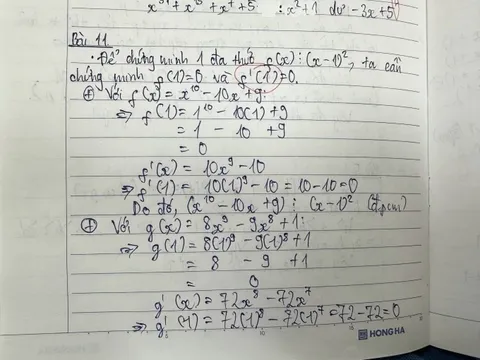 x³¹ + x⁹ + x⁴ + 5 : x² + 1 dư -3x + 5
Bài 11
• Để chứng minh 1 đa thức f(x) ⋮ (x-1)², ta cần
chứng minh f(1) = 0 và f'(1) = 0.
⊕ Với f(x) = x¹⁰ - 10x + 9:
⇒ f(1) = 1¹⁰ - 10(1) + 9
= 1 - 10 + 9
= 0
f'(x) = 10x⁹ - 10
⇒ f'(1) = 10(1)⁹ - 10 = 10 - 10 = 0
Do đó, (x¹⁰ - 10x + 9) ⋮ (x-1)² (đpcm)
⊕ Với g(x) = 8x⁹ - 9x⁸ + 1:
⇒ g(1) = 8(1)⁹ - 9(1)⁸ + 1
= 8 - 9 + 1
= 0
g'(x) = 72x⁸ - 72x⁷
⇒ g'(1) = 72(1)⁸ - 72(1)⁷ = 72 - 72 = 0
HONG HA